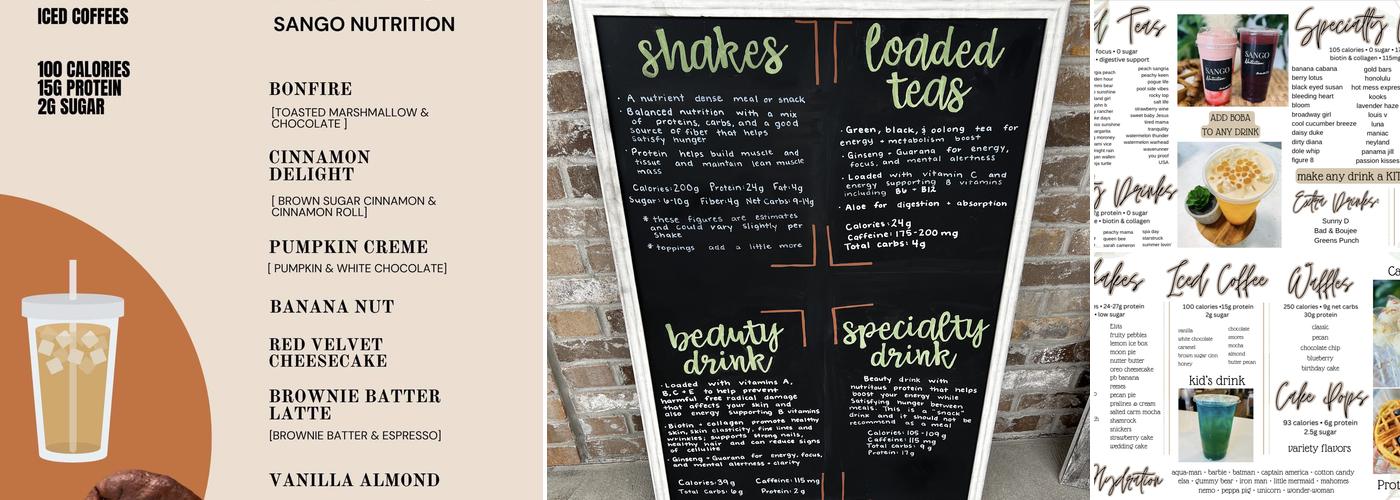 ICED COFFEES
100 CALORIES
15G PROTEIN
2G SUGAR
SANGO NUTRITION
BONFIRE
[TOASTED MARSHMALLOW &
CHOCOLATE ]
CINNAMON
DELIGHT
[ BROWN SUGAR CINNAMON &
CINNAMON ROLL]
PUMPKIN CREME
[ PUMPKIN & WHITE CHOCOLATE]
BANANA NUT
RED VELVET
CHEESECAKE
BROWNIE BATTER
LATTE
[BROWNIE BATTER & ESPRESSO]
VANILLA ALMOND
shakes
· A nutrient dense meal or snack
· Balanced nutrition with a mix
of proteins, carbs, and a good
source of fiber that helps
satisfy hunger
· Protein helps build muscle and
tissue and maintain lean muscle
mass
Calories: 200g Protein: 24g Fat: 4g
Sugar: 6-10g Fiber: 4g Net Carbs: 9-14g
* these figures are estimates
and could vary slightly per
shake
* toppings add a little more
loaded
teas
· Green, black, & oolong tea for
energy + metabolism boost
· Ginseng + Guarana for energy,
focus, and mental alertness
· Loaded with vitamin C and
energy supporting B vitamins
including B6 + B12
· Aloe for digestion + absorption
Calories: 24g
Caffeine: 175-200 mg
Total carbs: 4g
beauty
drink
· Loaded with vitamins A,
B, C + E to help prevent
harmful free radical damage
that affects your skin and
also energy supporting B vitamins
· Biotin + collagen promote healthy
skin, skin elasticity, fine lines and
wrinkles; supports strong nails,
healthy hair and can reduce signs
of cellulite
· Ginseng + Guarana for energy, focus,
and mental alertness + clarity
Calories: 39g Caffeine: 115 mg
Total Carbs: 6g Protein: 2g
specialty
drink
Beauty drink with
nutritous protein that helps
boost your energy while
satisfying hunger between
meals. This is a "snack"
drink and it should not be
recommend as a meal
Calories: 105-109g
Caffeine: 115 mg
Total carbs: 9g
Protein: 17g
Teas
focus • 0 sugar
• digestive support
peach sangria
peachy keen
pogue life
pool side vibes
rocky top
salt life
strawberry wine
sweet baby Jesus
tired mama
tranquility
watermelon thunder
watermelon
waverunner
you proof
USA
SANGO
SANGO
ADD BOBA
TO ANY DRINK
Specialty
105 calories • 0 sugar
biotin & collagen • 115mg
banana cabana
berry lotus
black eyed susan
bleeding heart
bloom
broadway girl
cool cucumber breeze
daisy duke
dirty diana
dole whip
figure 8
gold bars
honolulu
hot mess express
kooks
lavender haze
louis v
luna
maniac
neyland
panama jill
passion kisses
make any drink a KIT
Extra Drinks:
Sunny D
Bad & Boujee
Greens Punch
Drinks
protein • 0 sugar
• biotin & collagen
peachy mama
queen bee
sarah cameron
spa day
starstruck
summer lovin'
• 24-27g protein
• low sugar
Elvis
fruity pebbles
lemon ice box
moon pie
nutter butter
oreo cheesecake
pb banana
reeses
pecan pie
pralines & cream
salted carm mocha
shamrock
snickers
strawberry cake
wedding cake
Iced Coffee
100 calories •15g protein
2g sugar
vanilla
white chocolate
caramel
brown sugar cinn
honey
chocolate
smores
mocha
almond
butter pecan
kid's drink
Waffles
250 calories • 9g net carbs
30g protein
classic
pecan
chocolate chip
blueberry
birthday cake
Cake Pops
93 calories • 6g protein
2.5g sugar
variety flavors
Hydration
aqua-man • barbie • batman • captain america • cotton candy
elsa • gummy bear • iron man • little mermaid • mahomes
nemo • peppa pig • unicorn • wonder-woman